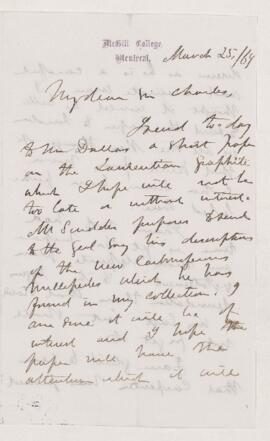 McGill College,
Montreal,
March 25/69
My dear Sir Charles,
I send to-day
to Mr Dallas a short paper
on the Laurentian Graphite
which I hope will not be
too late or without interest.
Mr Scudder purposes to send
to the Geol Socy his descriptions
of the new Carboniferous
Millepedes which he has
found in my collection. I
am sure it will be of
interest and I hope the
paper will have the
attention which it will